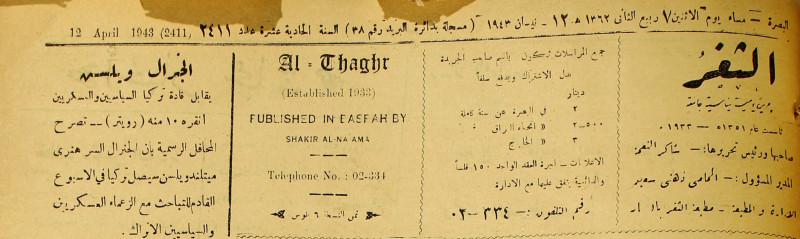 البصرة – مساء يوم الاثنين ٧ ربيع الثاني ١٣٦٢ هـ ١٢ – نيسان ١٩٤٣ (مسجلة بدائرة البريد رقم ٣٨) السنة الحادية عشرة عدد ٢٤١١ 12 April 1943 (2411)
الثغر
يومية سياسية جامعة
تأسست عام ١٣٥١ھ – ١٩٣٣م
صاحبها ورئيس تحريرها:– شاكر النعمة
المدير المسؤول:– المحامي ذهني سعيد
الادارة و المطبعة – مطبعة الثغر
جميع المراسلات تكون باسم صاحب الجريدة
بدل الاشتراك ويدفع سلفاً
دينار
٢ في البصرة عن سنة كاملة
٢–٥٠٠ « انحاء العراق «
٣ « الخارج «
الاعلانات – اجرة العقد الواحد ١٥٠ فلساً
والدائمية يتفق عليها مع الادارة
رقم التلفون:– ٣٣٤–٠٢
Al - Thaghr
(Established 1933)
PUBLISHED IN BASRAH BY
SHAKIR AL-NAAMA
Telephone No. : 02-334
ثمن النسخة ٦ فلوس
الجنرال ويلسن
يقابل قادة تركيا السياسيين والعسكريين
انقره ١٠ منه (رويتر) – تصرح
المحافل الرسمية بان الجنرال السر هنري
ميتلند ويلسن سيصل تركيا في الاسبوع
القادم للتباحث مع الزعماء العسكريين
والسياسيين الاتراك.